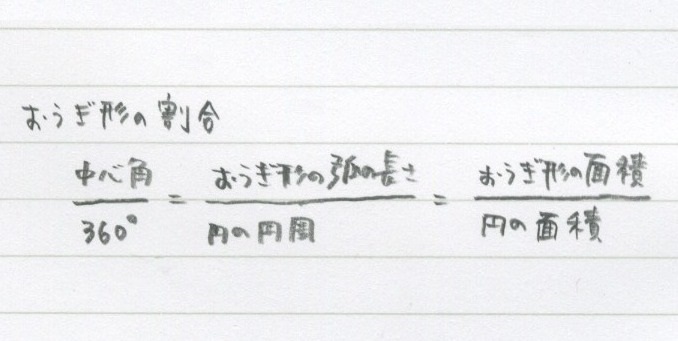 おうぎ形の割合
中心角/360° = おうぎ形の弧の長さ/円の円周 = おうぎ形の面積/円の面積